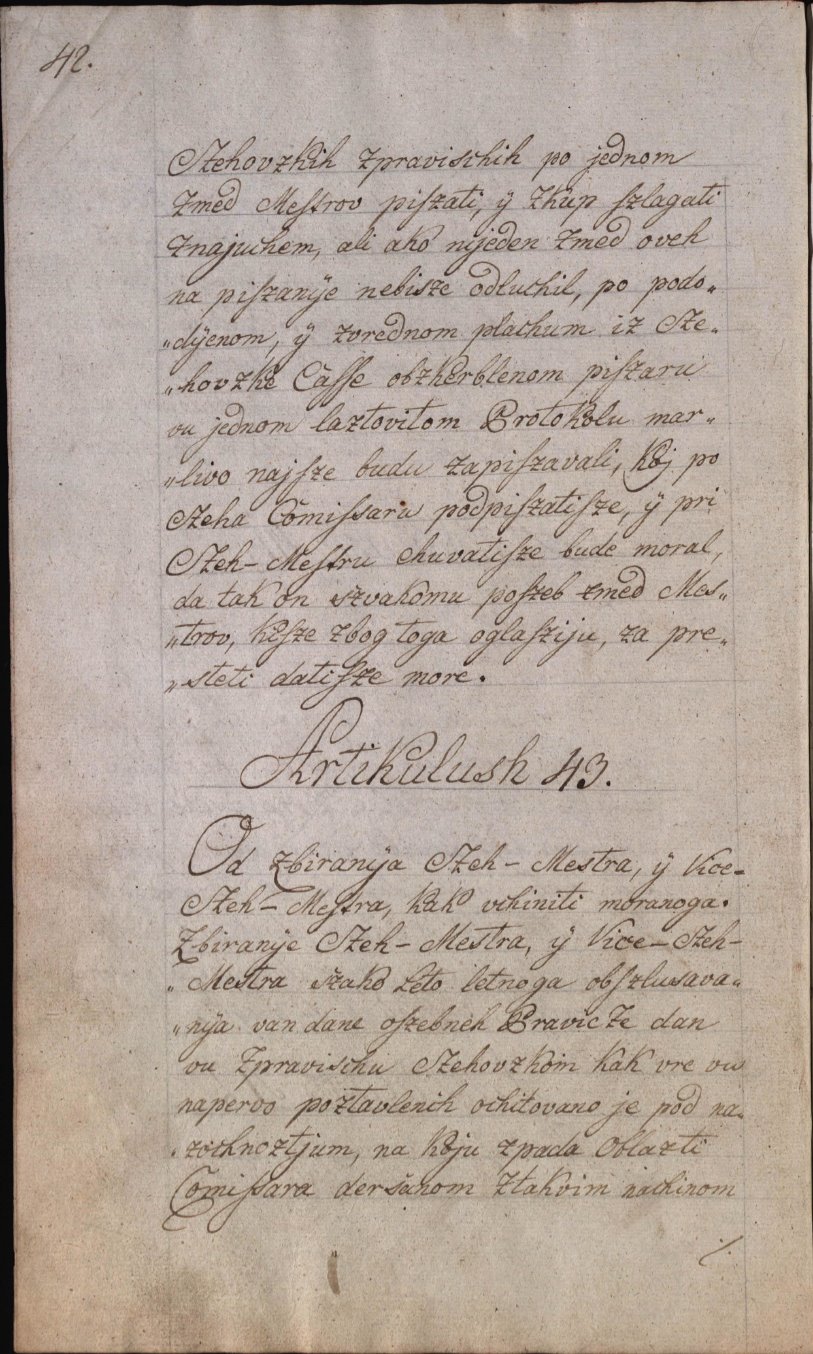 42.
Czehovzkih zpravischih po jednom
zmed Mesrov piszati, ÿ zkup szlagati
znajuchem, ali ako nijeden zmed oveh
na piszanÿe nebisze odluchil, po podo„
„dÿenom, ÿ zvrednom plachum iz Cze„
„hovzke Casse obzkerblenom piszaru
vu jednom laztovitom Protokolu mar„
„livo najsze budu zapiszavali, koj po
Czeha Comissaru podpiszatisze, ÿ pri
Czeh-Mestru chuvatisze bude moral,
da tak on szvakomu poszeb zmed Mes„
„trov, kisze zbog toga oglasziju, za pre„
„steti datisze more.
Artikulush 43.
Od zbiranÿa Czeh-Mestra, ÿ Vice-
Czeh-Mestra, kak vchiniti moranoga.
Zbiranÿe Czeh-Mestra, ÿ Vice-Czeh-
„Mestra szako Leto letnoga obszlusava„
„nÿa van dane oszebneh Pravicze dan
vu zpravischu Czehovzkom kak vre vu
napervo poztavlenih ochitovano je pod na„
„zochnoztjum, na koju zpada Oblazti
Comissara dersanom ztakvim nachinom
./.